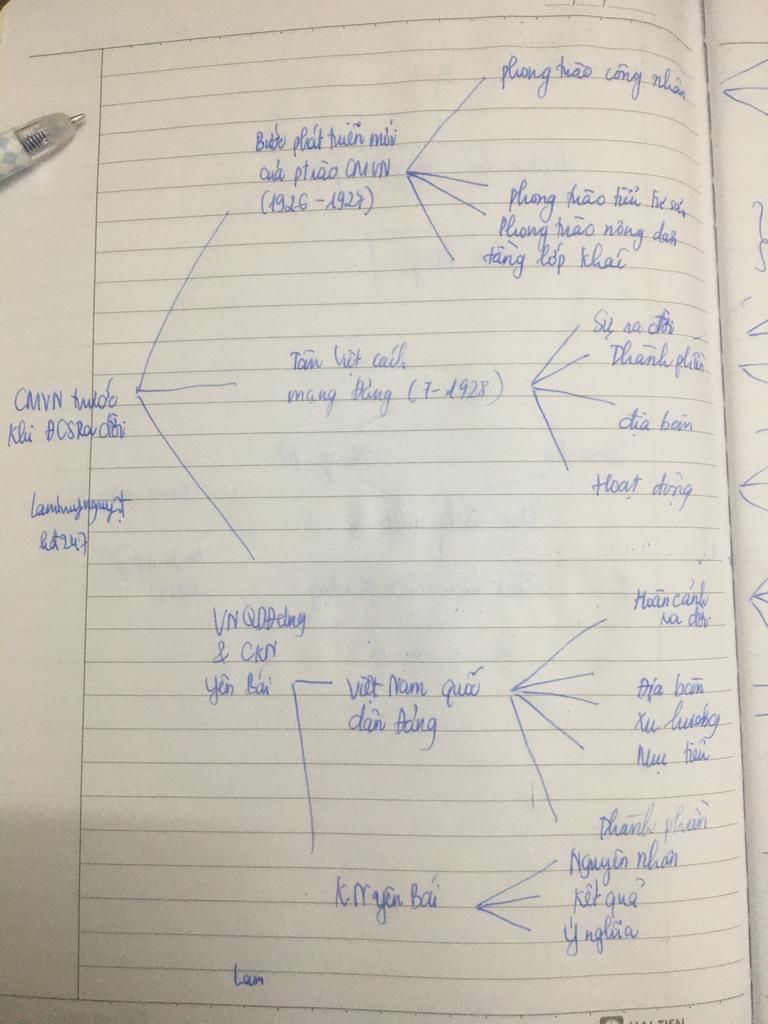 phong trào công nhân
Bước phát triển mới
của ptrào CMVN
(1926 - 1927)
phong trào tiểu tư sản
Phong trào nông dân
tầng lớp khác
Tân Việt cách
mạng Đảng (7-1928)
Sự ra đời
Thành phần
địa bàn
Hoạt động
CMVN trước
khi ĐCSRa đời
Lamhuynguyệt
hđ247
VNQDĐảng
& CKN
Yên Bái
Việt Nam quốc
dân Đảng
Hoàn cảnh
ra đời
Địa bàn
Xu hướng
Mục tiêu
Thành phần
KN yên Bái
Nguyên nhân
Kết quả
Ý nghĩa
Lam
HẢI TIẾN